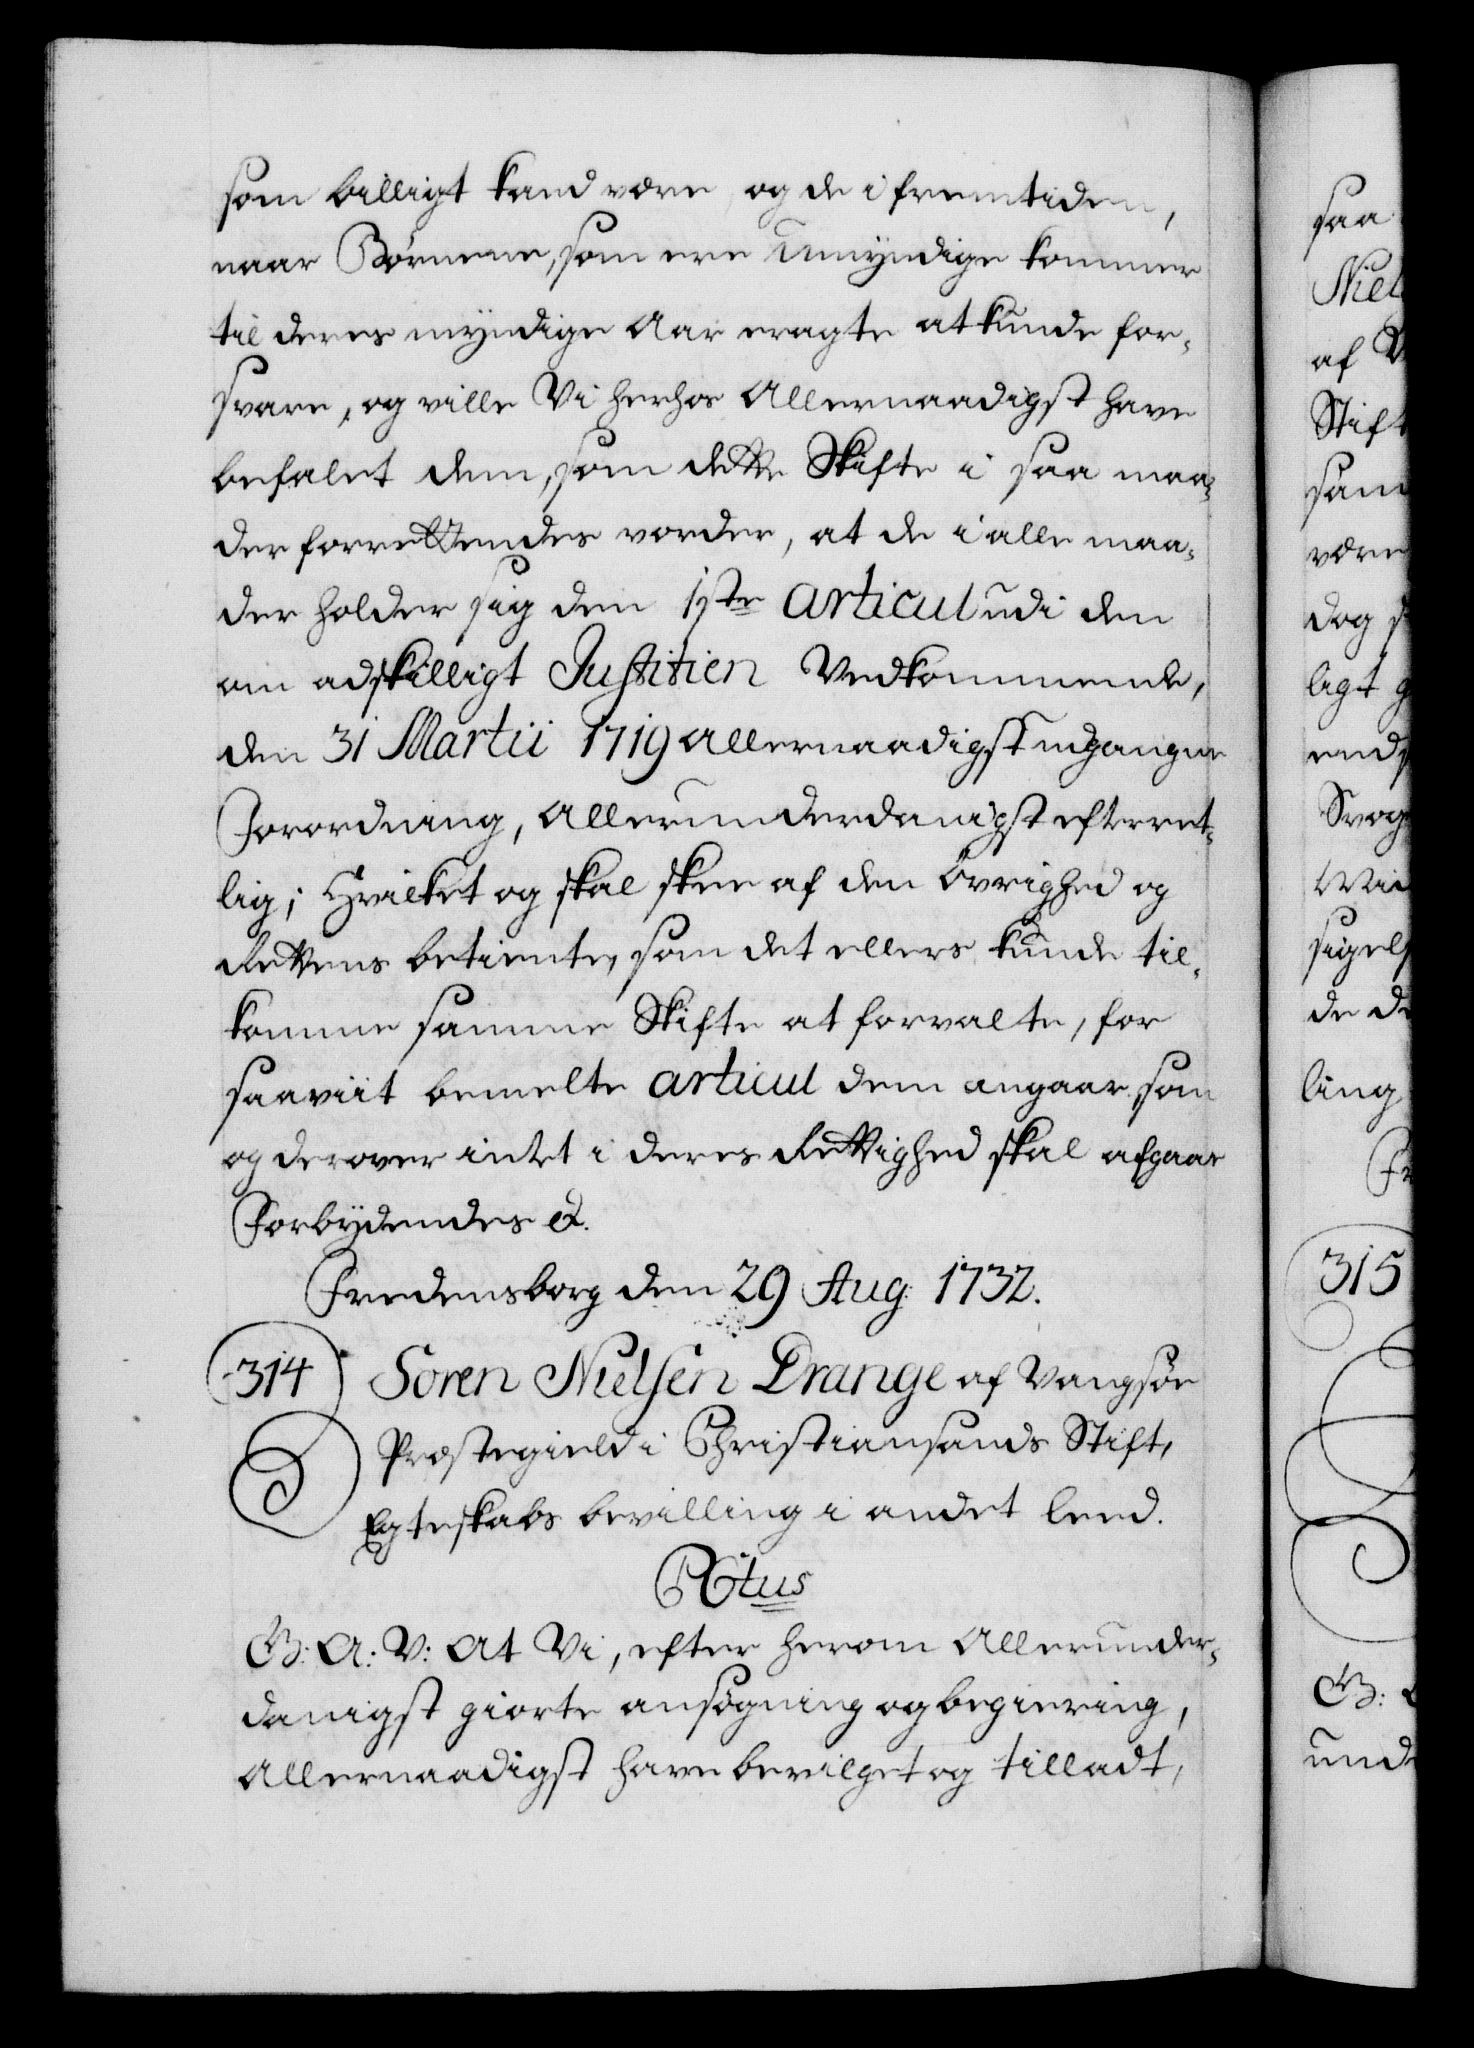 som billigt kand være, og de i fremtiden,
naar Börnene, som ere umyndige kommer
til deres myndige Aar eragte at kunde for-
svare, og ville Vi herhos Allernaadigst have
befalet dem, som dette Skifte i saa maa-
der forrettendes vorder, at de i alle maa-
der holder sig den 1ste articul udi den
om adskilligt Justitien Vedkommende,
den 31 Martii 1719 Allernaadigst udgangne
Forordning, Allerunderdanigst efterret-
lig; Hvilket og skal skee af den Övrighed og
Rettens betiente, som det ellers kunde til-
komme samme Skifte at forvalte, for
saaviit bemelte articul dem angaar, som
og derover intet i deres Rettighed skal afgaae
Forbydendes &.
Fredensborg den 29 Aug: 1732.
314 Soren Nielsen Drange af Vangsöe
Præstegield i Christiansands Stift,
Egteskabs bevilling i andet leed.
Rtus
G: A: V: At Vi, efter herom Allerunder-
danigst giorte ansögning og begiering,
Allernaadigst have bevilget og tilladt,
saa
af
Stift
være
dog
ligt
de
ling
315
G: